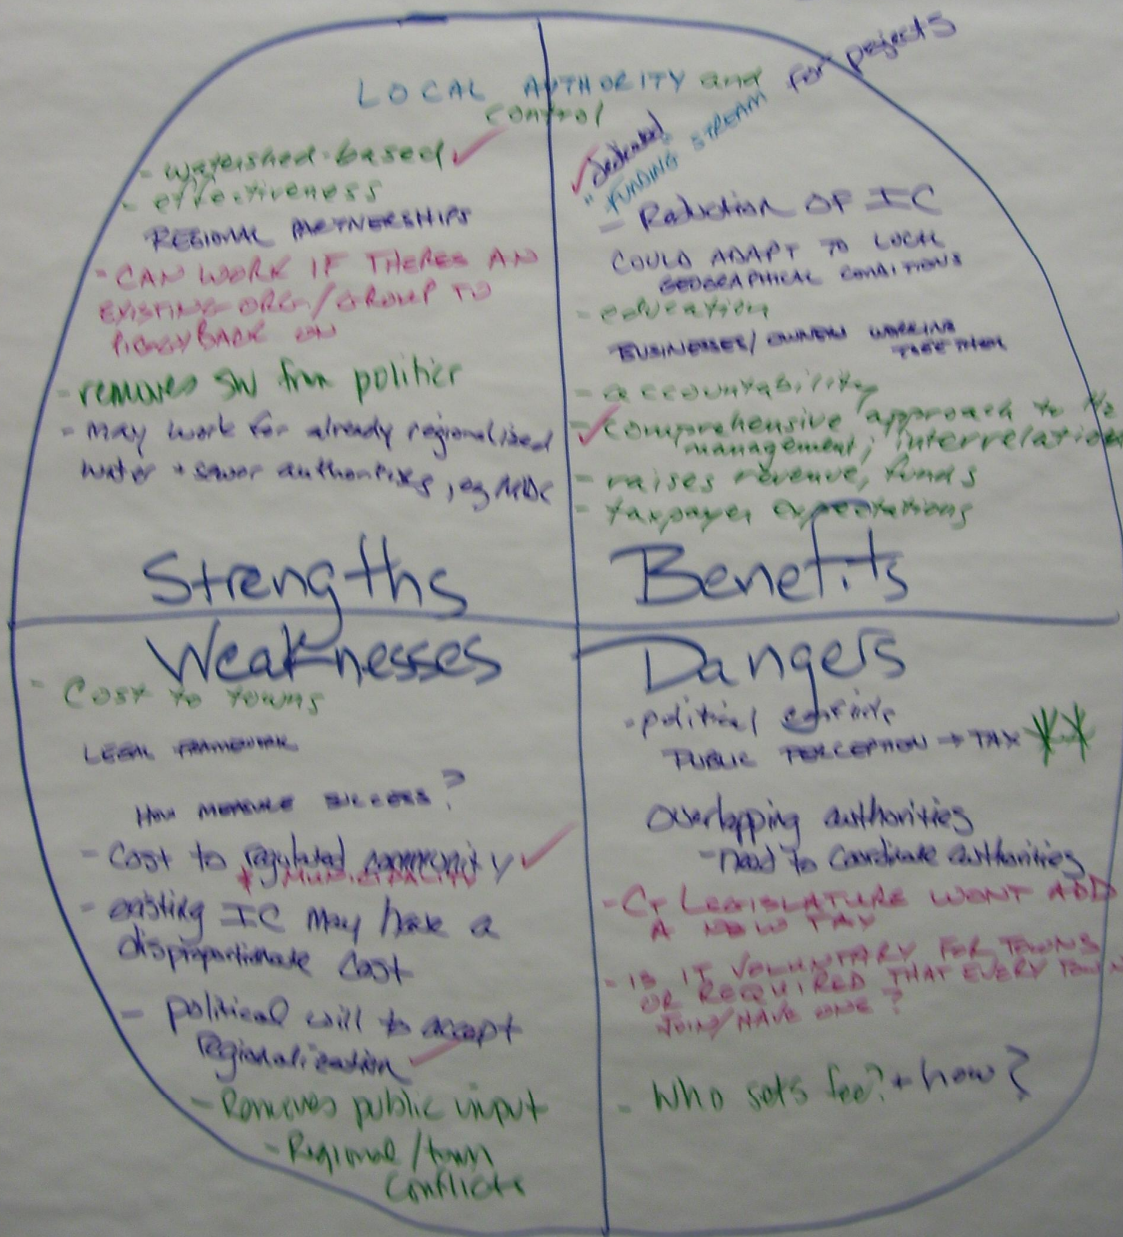 LOCAL AUTHORITY and
control
- watershed-based
- effectiveness
REGIONAL PARTNERSHIPS
- CAN WORK IF THERES AN
EXISTING ORG/GROUP TO
PIGGYBACK ON
- removes SW from politics
- may work for already regionalized
water + sewer authorities, eg MDC
Strengths
dedicated for pojects
FUNDING STREAM
- Reduction OF IC
COULD ADAPT TO LOCAL
GEOGRAPHICAL CONDITIONS
- education
BUSINESSES/OWNERS WORKING
TOGETHER
- accountability
- comprehensive approach to
management, interrelation
- raises revenue, funds
- taxpayer expectations
Benefits
Weaknesses
- Cost to towns
LEGAL FRAMEWORK
HOW MEASURE SUCCESS?
- Cost to regulated community
+ MUNICIPALITY
- existing IC may have a
disproportionate cost
- political will to accept
regionalization
- Removes public input
- Regional/town
conflicts
Dangers
- political
PUBLIC PERCEPTION → TAX
Overlapping authorities
- need to coordinate authorities
- CT LEGISLATURE WONT ADD
A NEW TAX
- IS IT VOLUNTARY FOR TOWNS
OR REQUIRED THAT EVERY TOWN
JOIN/HAVE ONE?
- Who sets fee? + how?